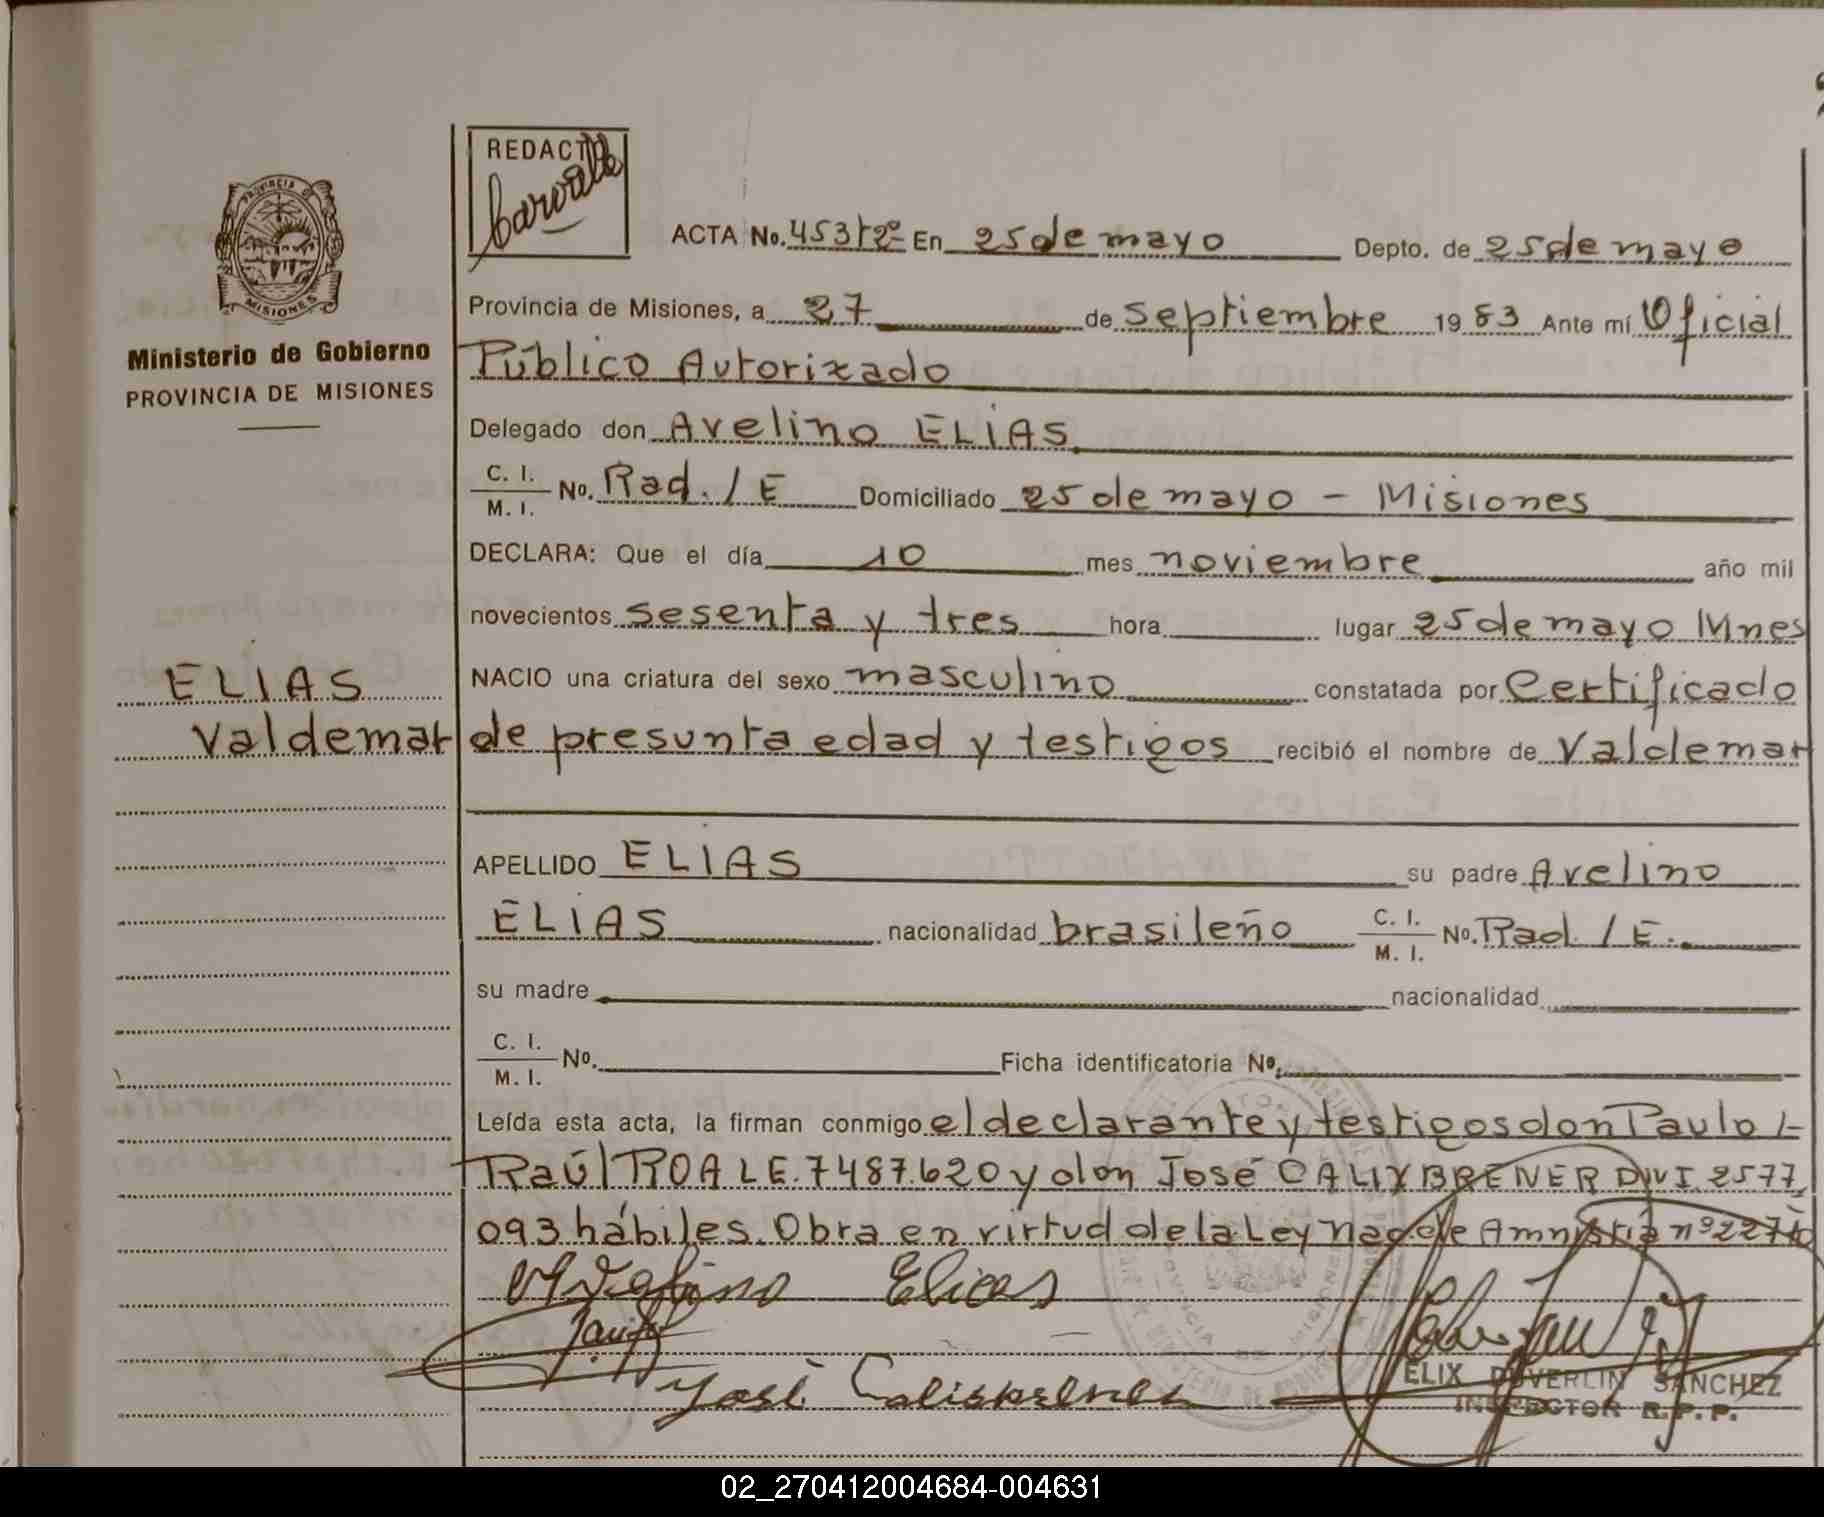 REDACTO
PROVINCIA DE
MISIONES
Ministerio de Gobierno
PROVINCIA DE MISIONES
ACTA No. 453 Tº 2º En 25 de mayo Depto. de 25 de mayo
Provincia de Misiones, a 27 de septiembre 1983 Ante mí Oficial
Público Autorizado
Delegado don Avelino ELIAS
C. I. / M. I. No. Rad. / E Domiciliado 25 de mayo - Misiones
DECLARA: Que el día 10 mes noviembre año mil
novecientos sesenta y tres hora lugar 25 de mayo Mnes
ELIAS
NACIO una criatura del sexo masculino constatada por Certificado
Valdemar
de presunta edad y testigos recibió el nombre de Valdemar
APELLIDO ELIAS su padre Avelino
ELIAS nacionalidad brasileño C. I. / M. I. No. Rad. / E.
su madre nacionalidad
C. I. / M. I. No. Ficha identificatoria No.
Leída esta acta, la firman conmigo el declarante y testigos don Paulo
Raúl ROA L E. 7487.620 y don José CALIXBRENER DNI. 2577
093 hábiles. Obra en virtud de la Ley Nac. de Amnistía nº
Elias
José
FELIX DUVERLIN SANCHEZ
INSPECTOR R. P. P.
02_270412004684-004631